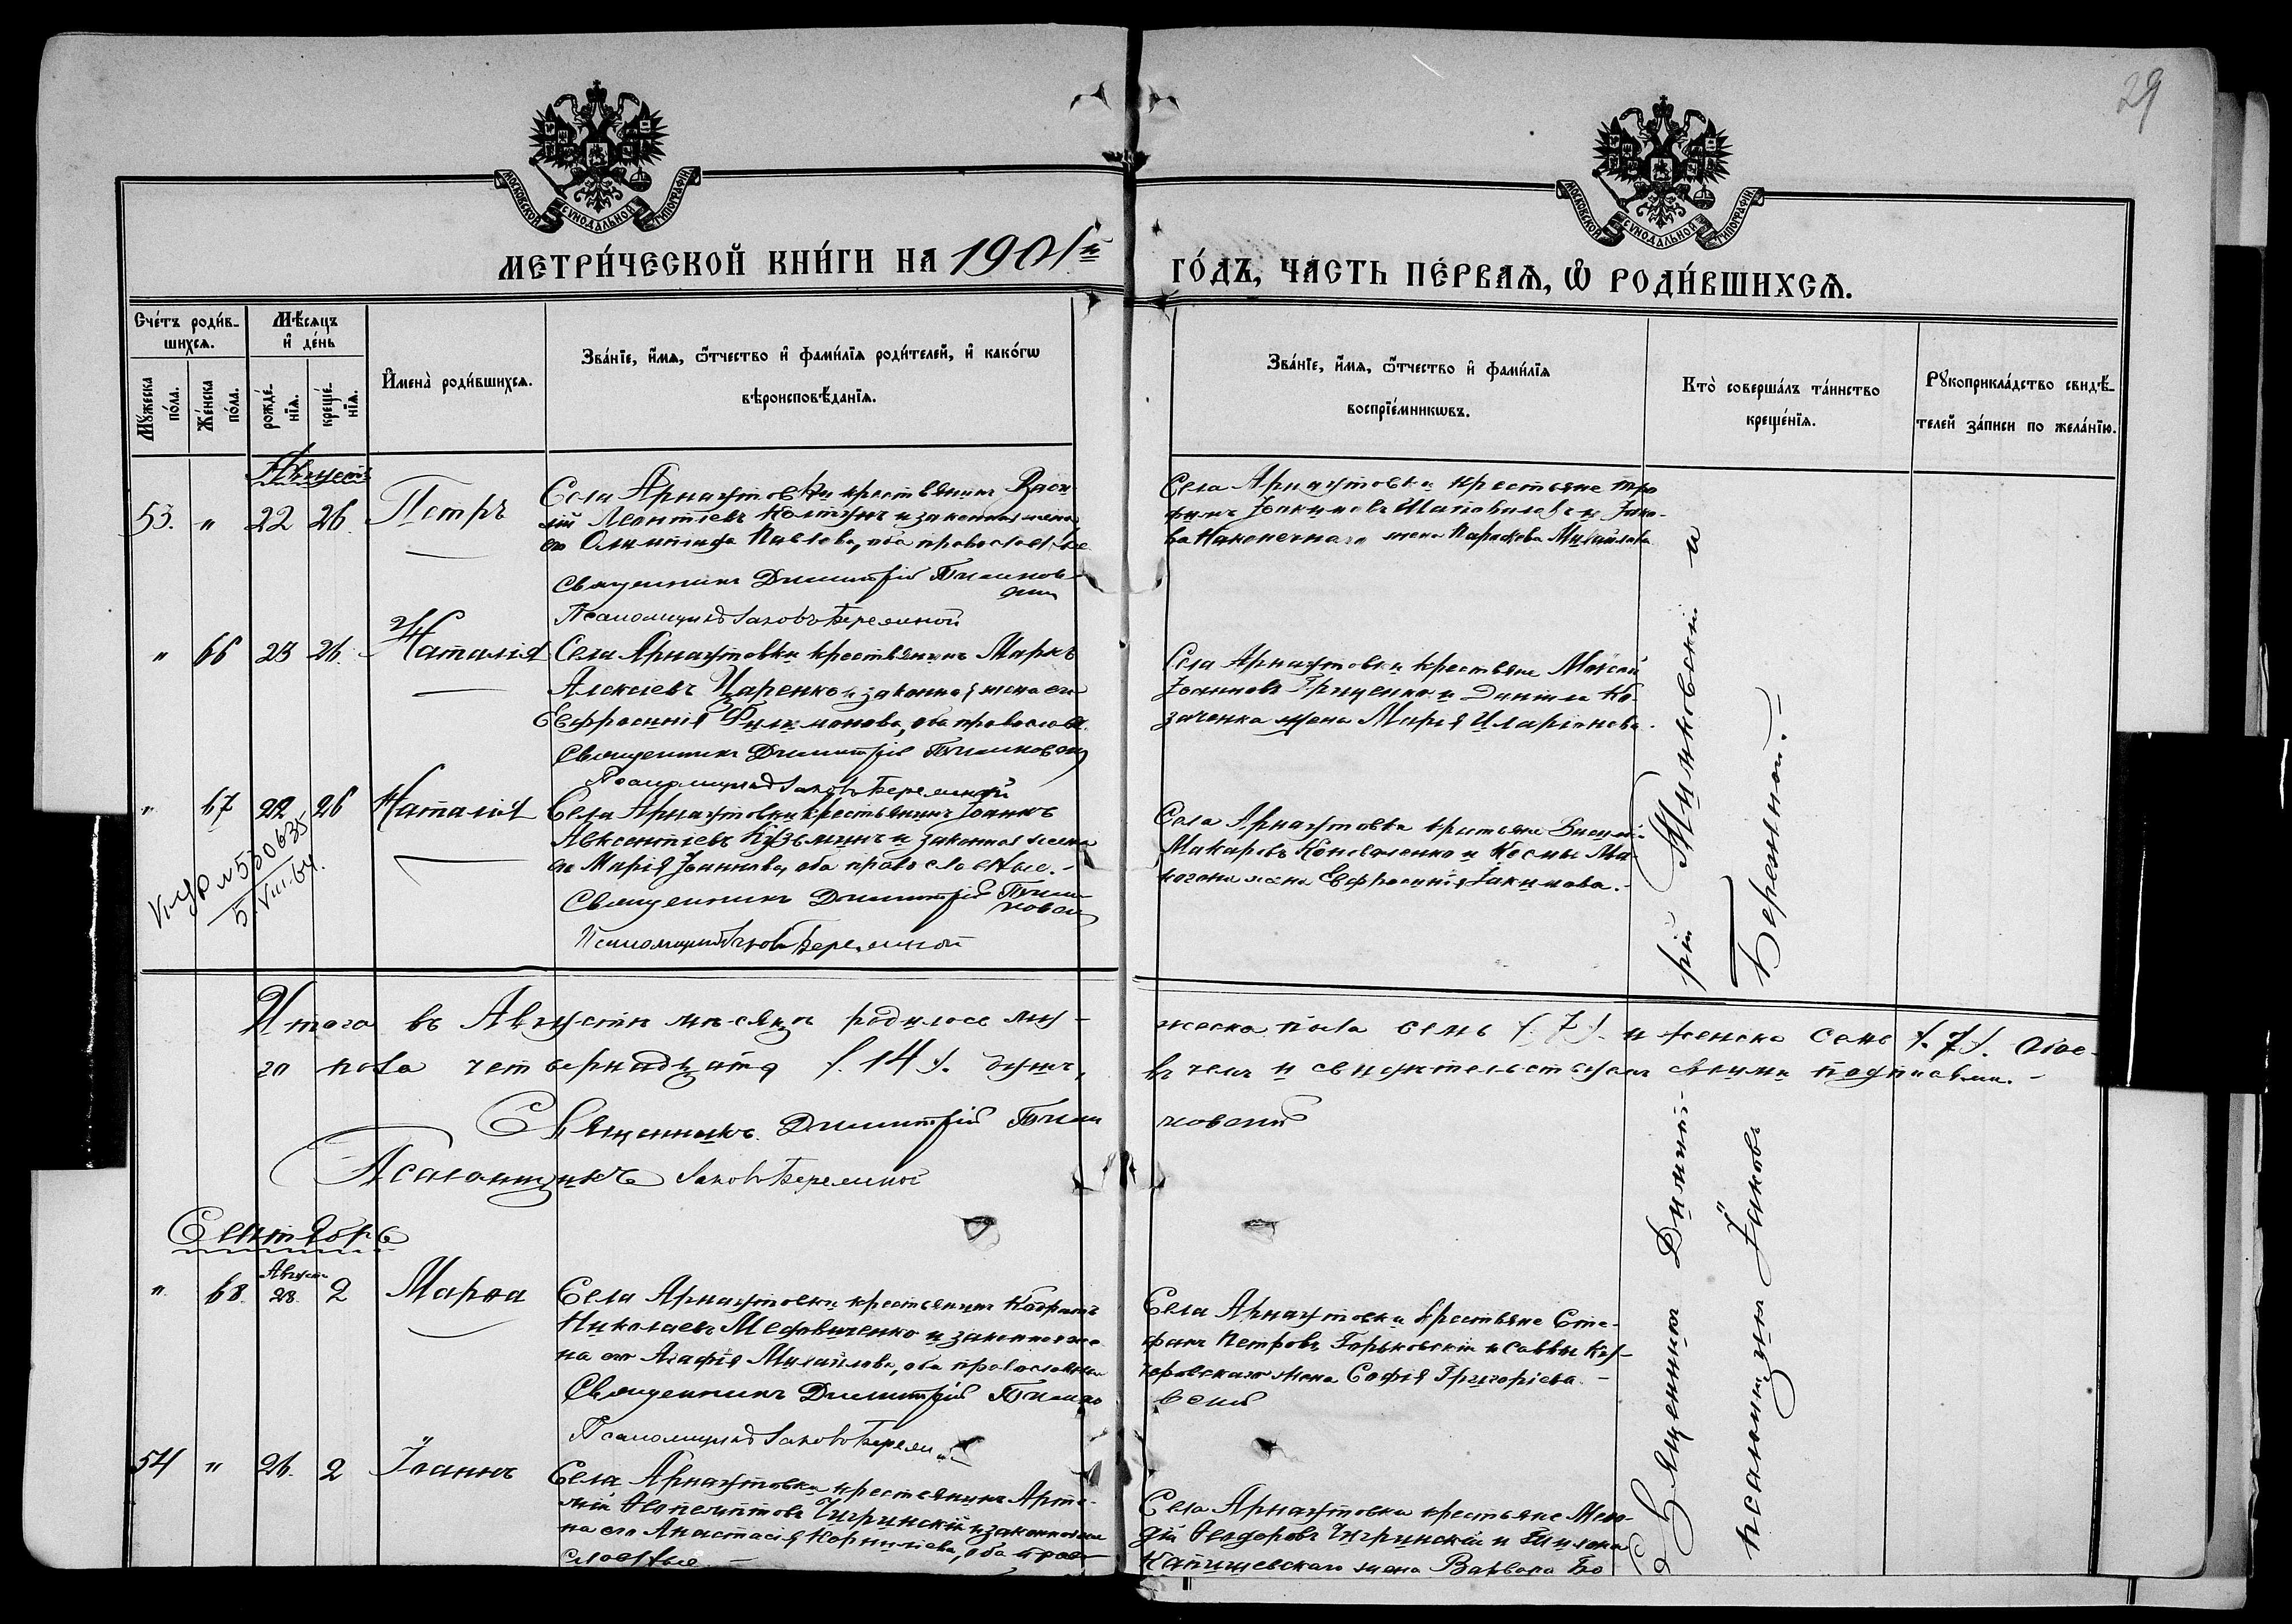 29
МОСКОВСКОЙ СѴНОДАЛЬНОЙ ТИПОГРАФІИ
МОСКОВСКОЙ СѴНОДАЛЬНОЙ ТИПОГРАФІИ
МЕТРИ́ЧЕСКОЙ КНИ́ГИ НА 1901й ГО́ДЪ, ЧА́СТЬ ПЕ́РВАѦ, Ѽ РОДИ́ВШИХСѦ.
Сче́тъ роди́в-
шихсѧ.
Мꙋ́жеска по́ла.
Же́нска по́ла.
Мѣ́сѧцъ
и҆ де́нь
рожде́-
нїѧ.
креще́-
нїѧ.
И҆мена̀ роди́вшихсѧ.
Зва́нїе, и҆́мѧ, ѻ҆́тчество и҆ фами́лїѧ роди́телей, и҆ како́гѡ
вѣроисповѣ́данїѧ.
Зва́нїе, и҆́мѧ, ѻ҆́тчество и҆ фами́лїѧ
воспрїе́мникѡвъ.
Кто̀ соверша́лъ та́инство
креще́нїѧ.
Рꙋкоприкла́дство свидѣ́-
телей за́писи по жела́нїю.
Августъ
53. " 22 26. Петръ
Села Арнаутовки крестьянинъ Васи-
лій Леонтіевъ Колтунъ и законная жена
его Олимпіада Павлова, оба православные
Священникъ Димитрій
Псаломщикъ Іаковъ Беременной
Села Арнаутовки крестьяне Тро-
фимъ Іоакимовъ Шаповаловъ и Іако-
ва Наконечнаго жена Параскева Михайлова
" 66 23 26. Наталія
Села Арнаутовки крестьянинъ Маркъ
Алексіевъ Царенко и законная жена его
Евфросинія Филимонова, оба православ.
Священникъ Димитрій
Псаломщикъ Іаковъ Беременной
Села Арнаутовки крестьяне Моисей
Іоанновъ Гриценко и Даніила Ко-
заченка жена Марія Иларіонова.
" 67 22 26 Наталія
Села Арнаутовки крестьянинъ Іоаннъ
Авксентіевъ Кузьминъ и законная жена
его Марія Іоаннова, оба православные.-
Священникъ Димитрій
Псаломщикъ Іаковъ Беременной
Села Арнаутовки крестьяне Василій
Макаровъ Коноваленко и Косьмы Ма-
когона жена Евфросинія Іакимова.-
№ 520635
5.VIII.64.
Итого въ Августѣ мѣсяцѣ родилось му-жеска пола семь (7) и женска семь (7). Обое-
го пола четырнадцать (14) душъ, въ чемъ и свидѣтельствуемъ своими подписями.-
Священникъ Димитрій
Псаломщикъ Іаковъ Беременной
Сентябрь
" 68. Август 28. 2 Марѳа
Села Арнаутовки крестьянинъ Кодратъ
Николаевъ Медовиченко и законная же-
на его Агафія Михайлова, оба православные
Священникъ Димитрій
Псаломщикъ Іаковъ Беремен
Села Арнаутовки крестьяне Сте-
фанъ Петровъ Горьковскій и Саввы Ку-
черовскаго жена Софія Григоріева.-
54 " 26. 2 Іоаннъ
Села Арнаутовки крестьянинъ Арте-
мій Чигринскій и законная же
на его Анастасія Корниліева, оба право-
славные -
Села Арнаутовки крестьяне Меѳо-
дій Ѳеодоровъ Чигринскій и
жена Варвара
Священникъ Димит-рій и
псаломщикъ Іаковъ Беременной.-